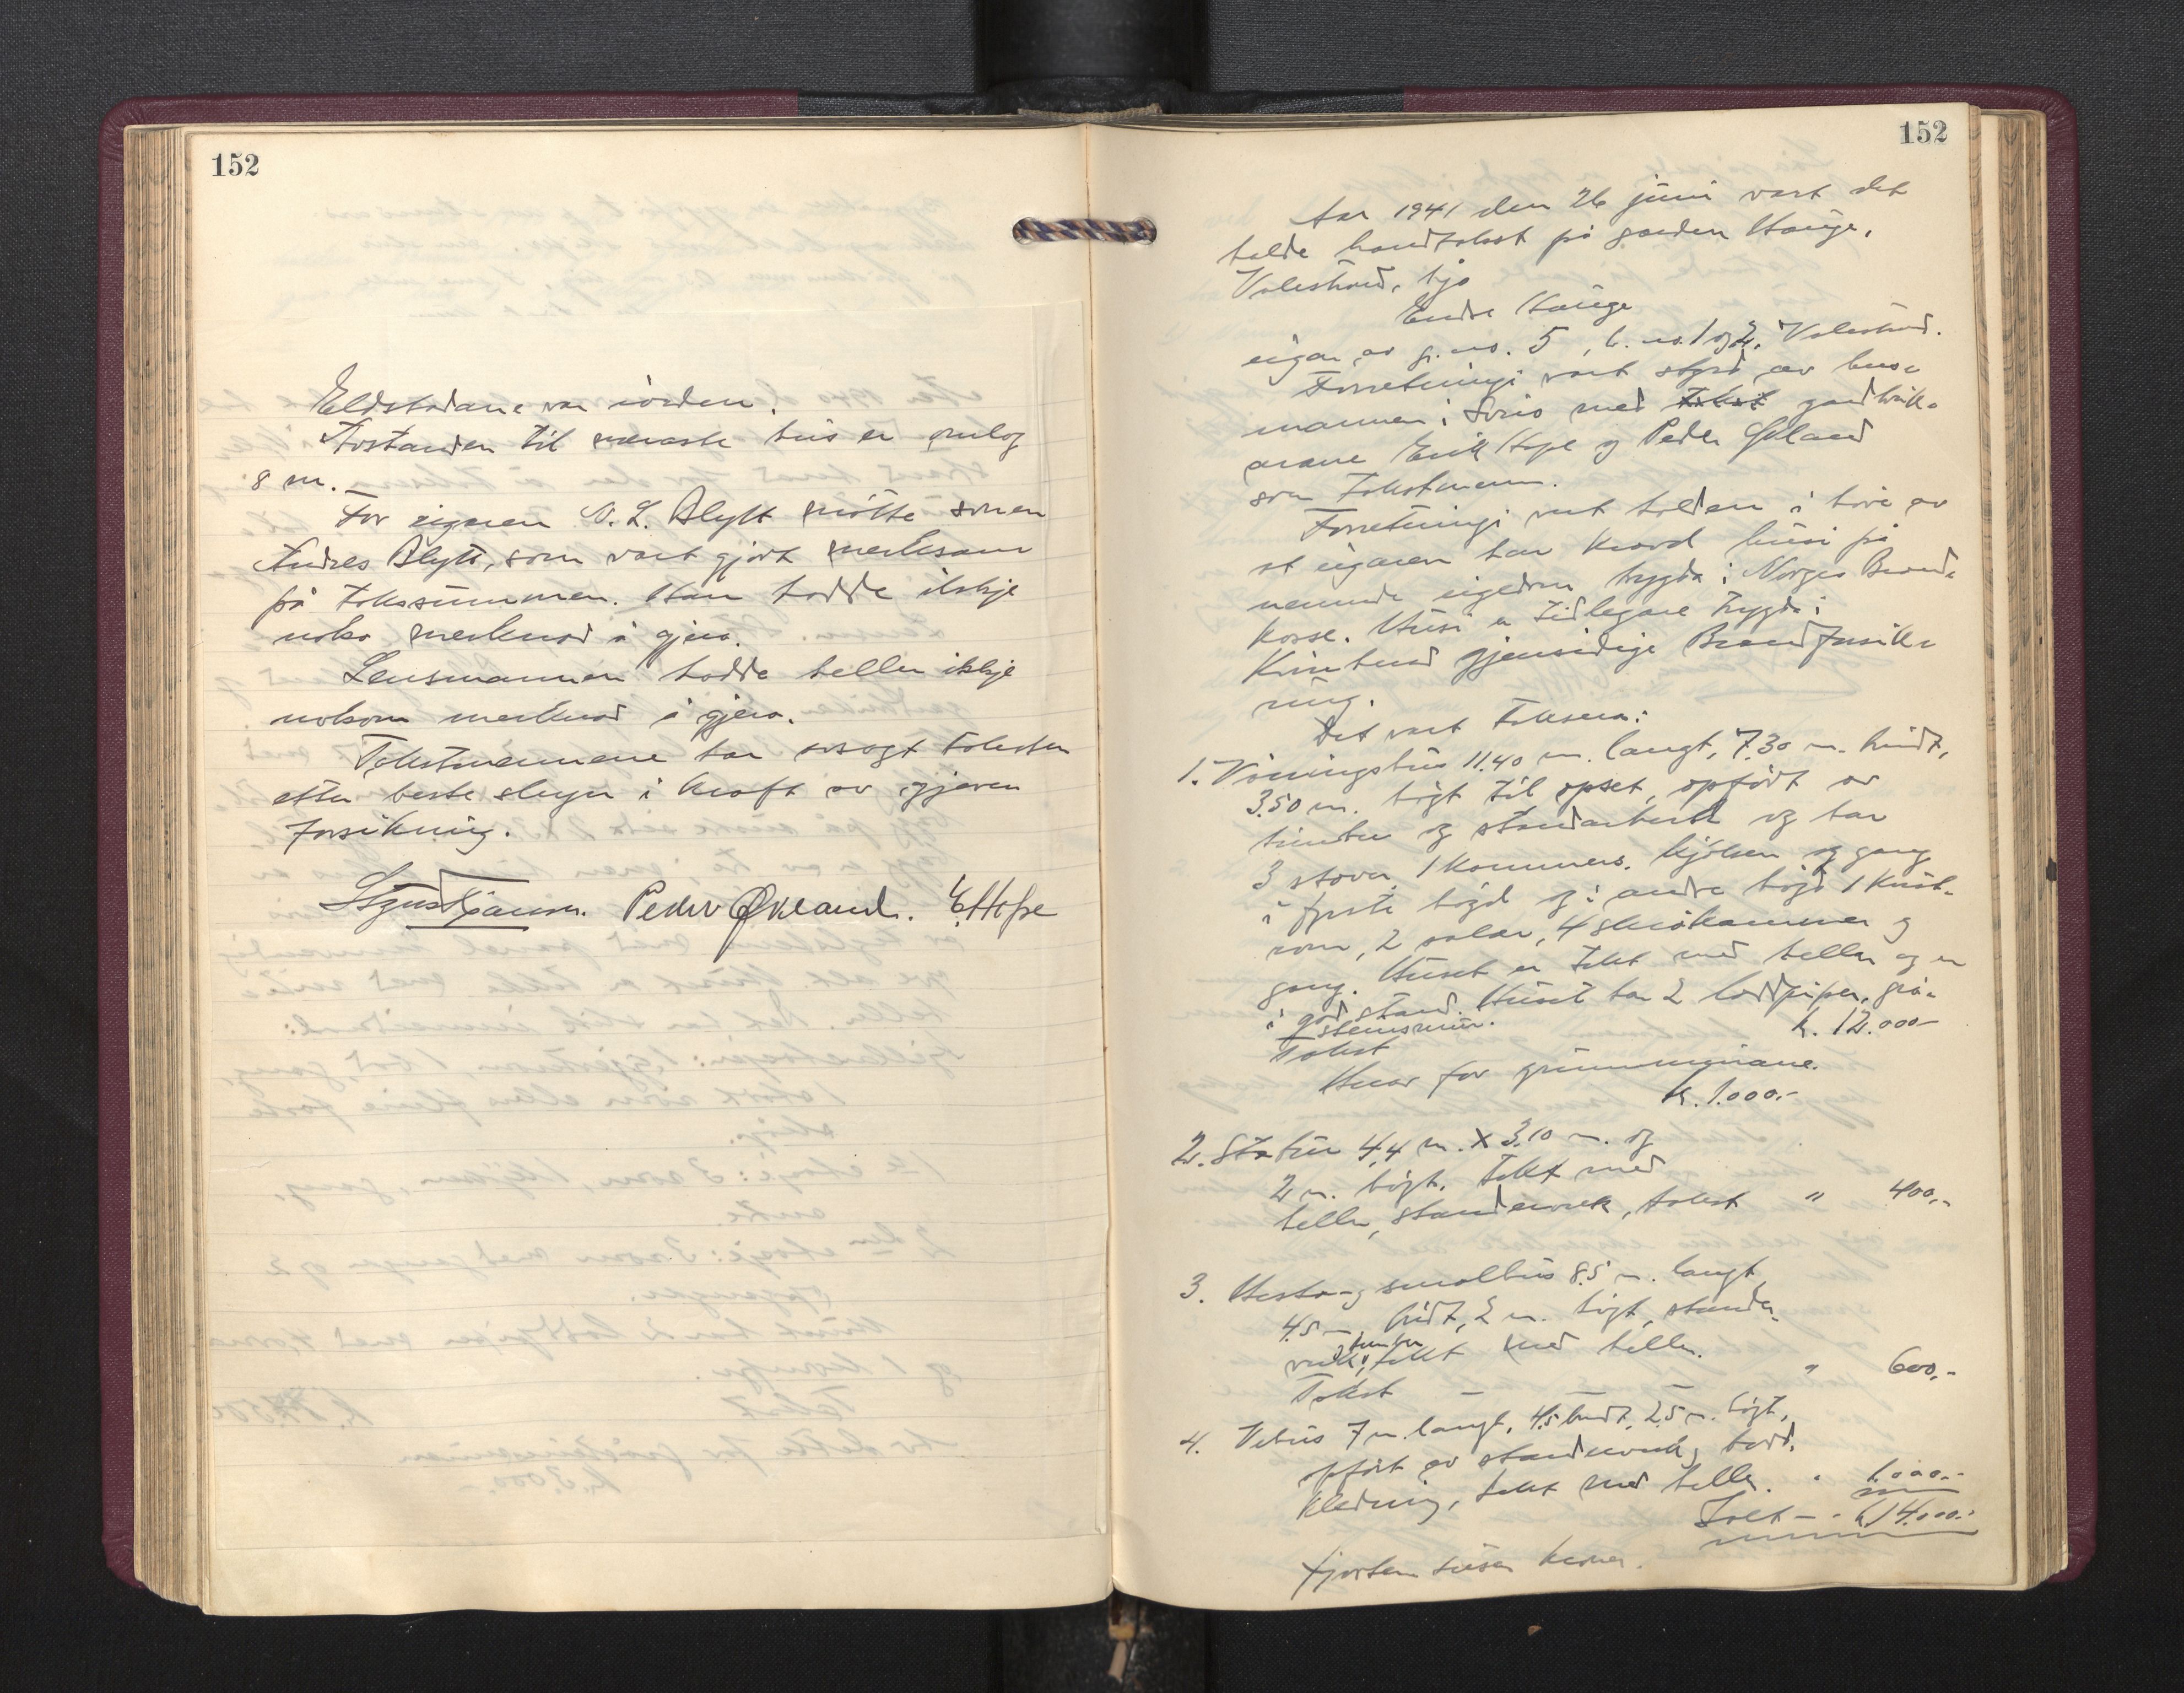 152
Eldstadane var i orden.
Avstanden til næraste hus er umlag
8 m.
For eigaren N. L. Blytt møtte sonen
Andres Blytt, som vart gjort merksam
på takstsummen. Han hadde ikkje
noko merknad å gjera.
Lensmannen hadde heller ikkje
nokon merknad å gjera.
Takstmennene har avsagt taksten
etter beste skyn i kraft av gjeven
forsikring.
Peder Økland. E. Hope
152
Aar 1941 den 26 juni vart det
halde brandtakst på garden Hauge,
Valestrand, hjå
Endre Hauge
eigar av g. no. 5, b. no. 1 og 2, Valestrand.
Forretningi vart styrd av lens-
mannen i Sveio med takst gardbruk-
arane Erik Hope og Peder Økland
som takstmenn.
Forretningi vart halden i høve av
at eigaren har kravd husi på
nemnde eigedom trygda i Norges Brand-
kasse. Husi er tidlegare trygda i
gjensidige Brandforsik-
ring.
Det vart taksera:
1. Våningshus 11.40 m. langt, 7.30 m. breidt,
3.50 m. högt til opset, opfört av
timber og standarverk og har
3 stover, 1 kammers, kjöken og gang
i fyrste högd og i andre högd 1 kvist-
rom, 2 salar, 4 småkammer og
gang. Huset er tekt med heller og er
i god stand. Huset har 2 loddpiper, grå-
steinsmur.
Takst k. 12.000-
Herav for grunnmurane.
k. 1.000.-
2. 4,4 m. x 3.10 m. og
2 m. högt. Tekt med
heller, standerverk, takst " 400,-
3. Hesta- og smalhus 8.5 m. langt
4.5 m breidt, 2 m. högt, stander-
verk, tekt med heller.
Takst - - " 600,-
4. Vehus 7 m. langt, 4.5 breidt, 2.5 m. högt,
opfört av standerverk og bord-
kledning, tekt med heller. " 1.000.-
k. 14.000.-
Fjorten tusen kroner.